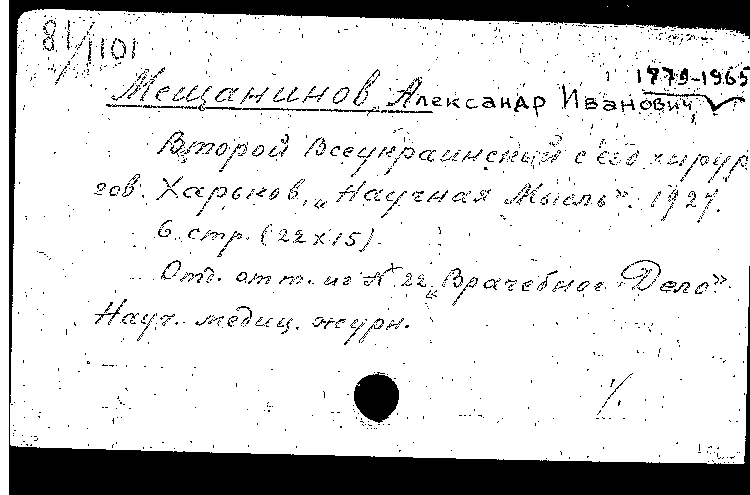 81/1101
1879-1965
Мещанинов, Александр Иванович,
Второй Всеукраинский с'езд хирур
гов. Харьков, „Научная Мысль". 1927.
6 стр. (22х15).
Отд. отт. из № 22 „Врачебное Дело"
Науч. медиц. журн.